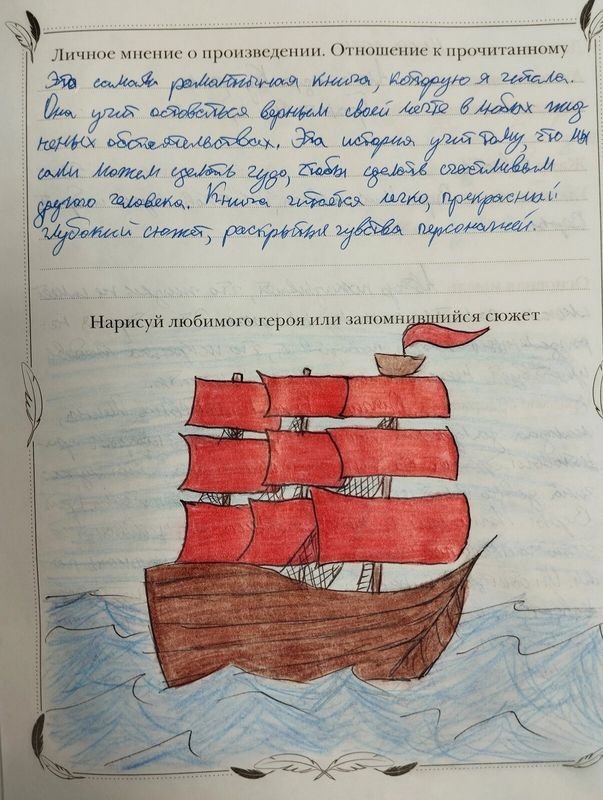 Личное мнение о произведении. Отношение к прочитанному
Это самая романтичная книга, которую я читала.
Она учит оставаться верным своей мечте в любых жиз
неных обстоятельствах. Эта история учит тому, что мы
сами можем сделать чудо, чтобы сделать счастливым
другого человека. Книга читается легко, прекрасный
глубокий сюжет, раскрытые чувства персонажей.
Нарисуй любимого героя или запомнившийся сюжет